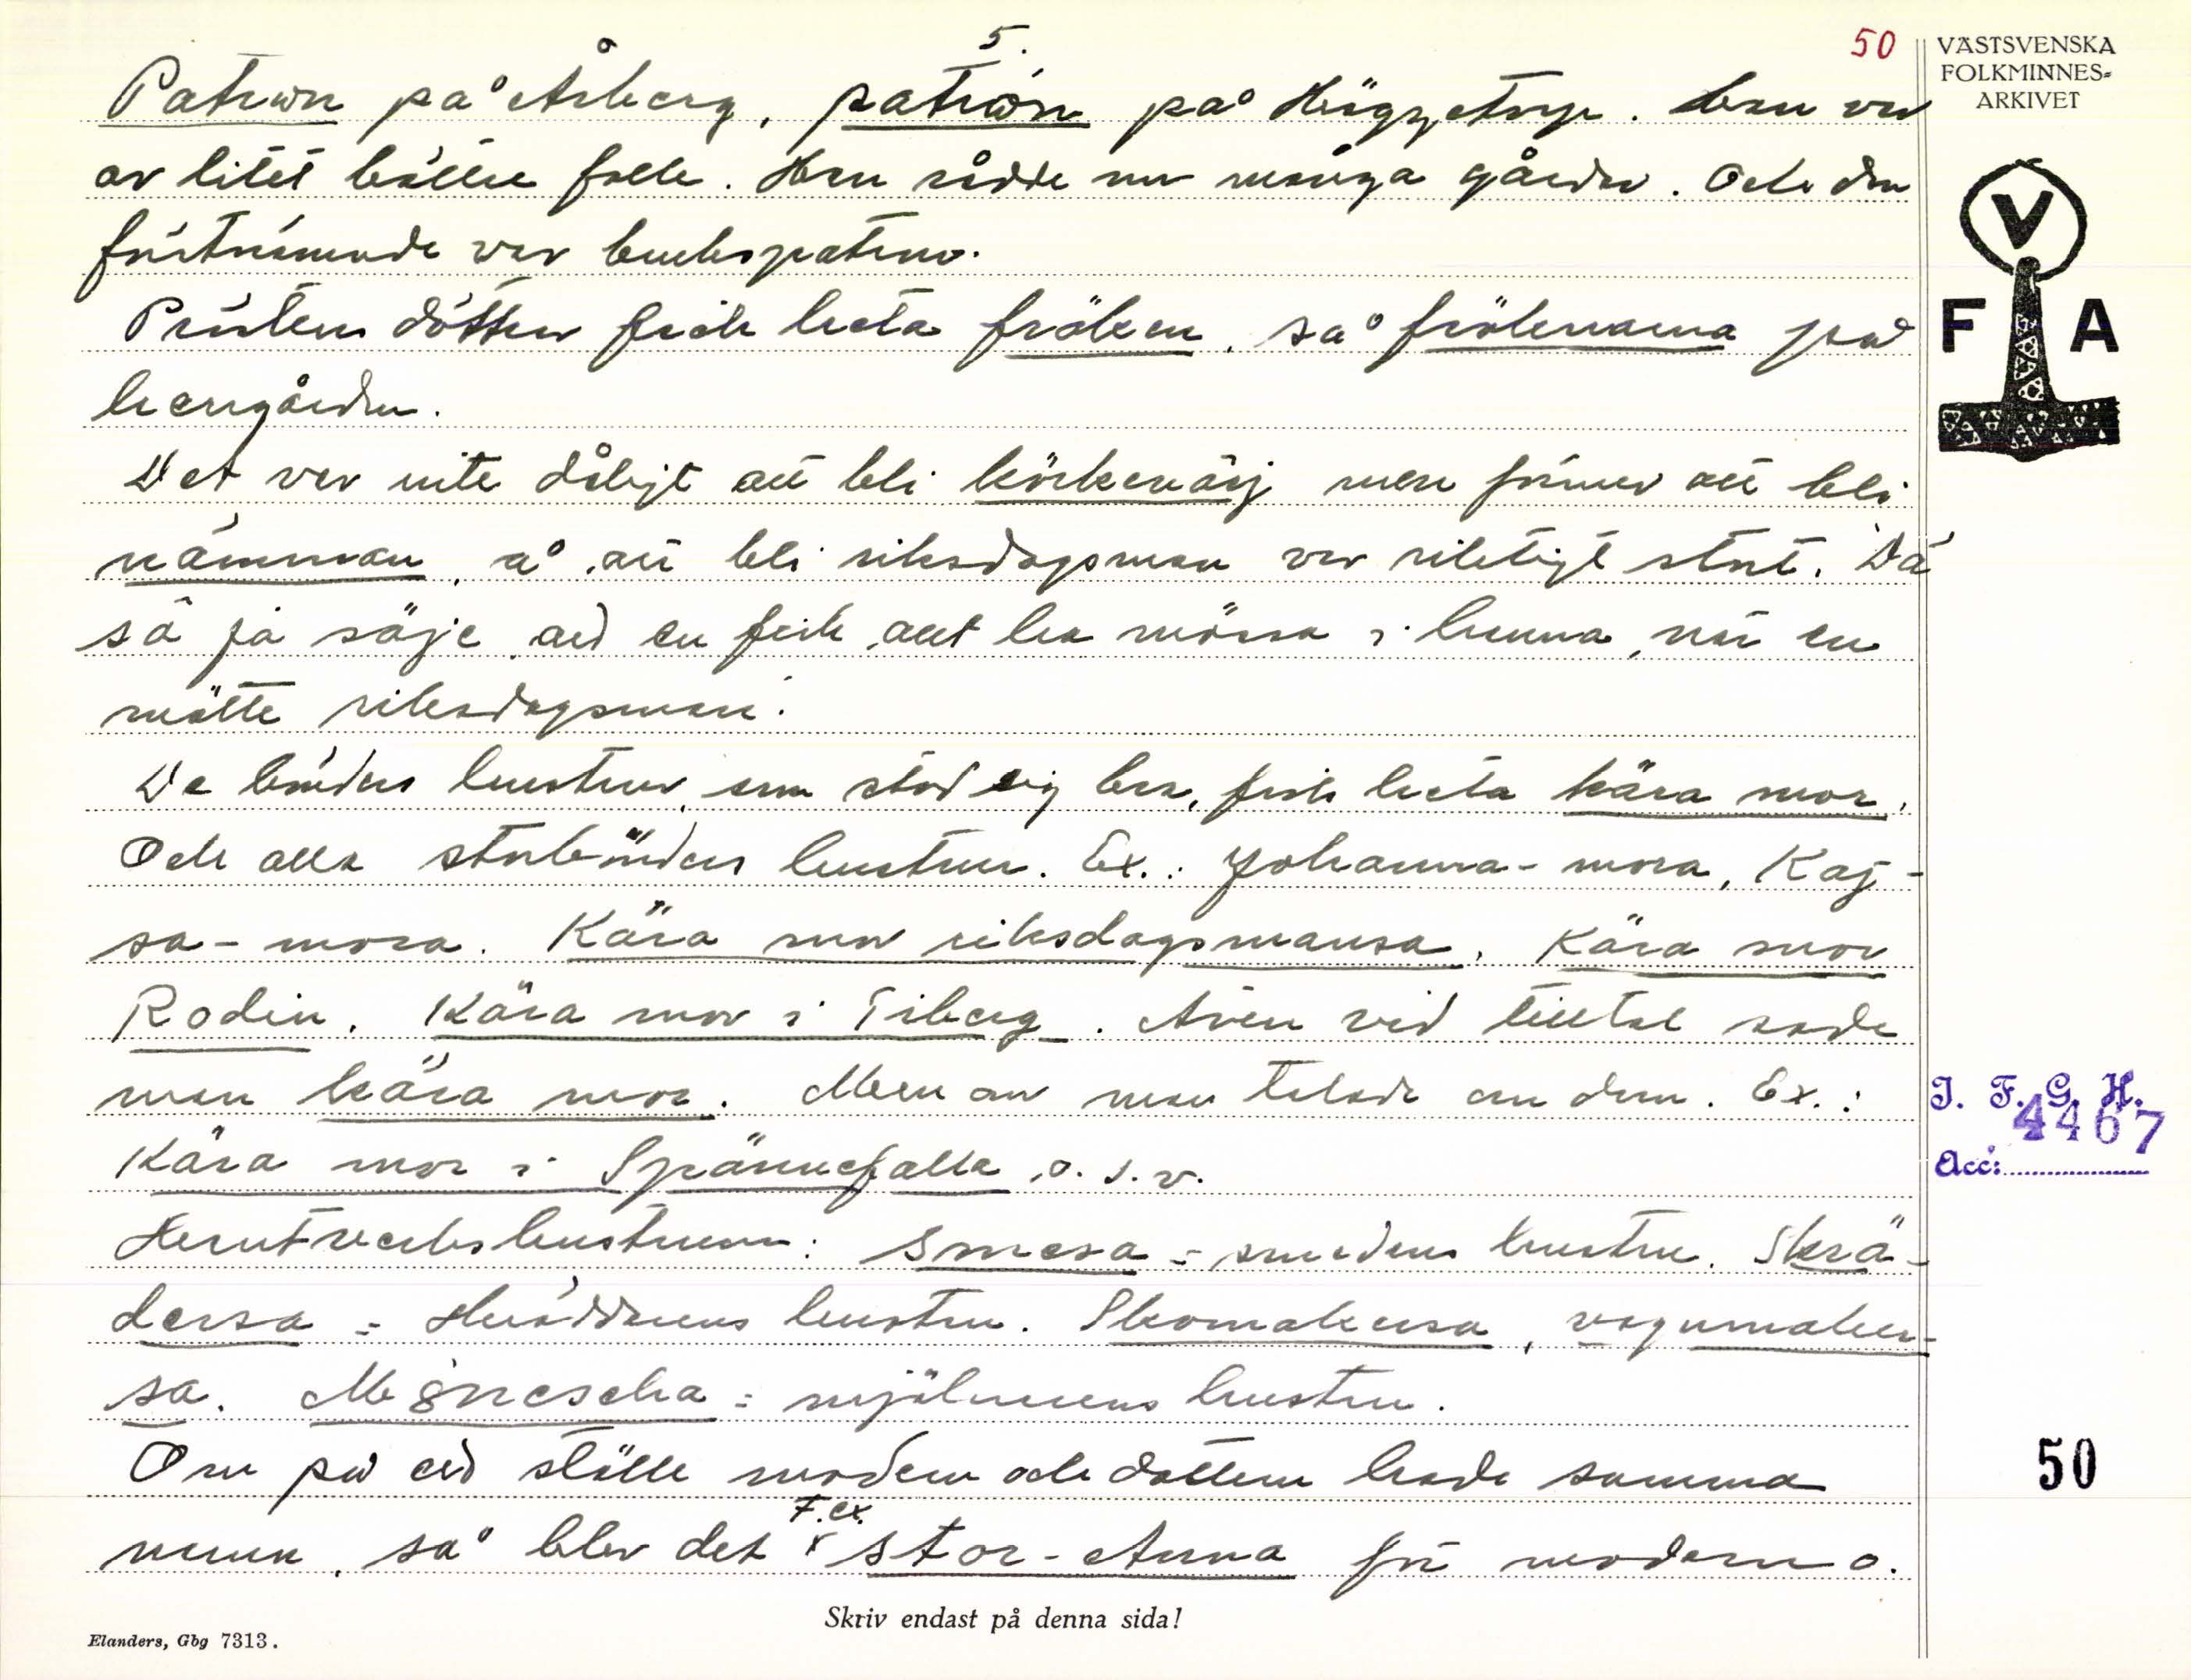 5.
50
VÄSTSVENSKA
FOLKMINNES-
ARKIVET
Patron på Årberg, patron på Höggetorp. Han var
av litet bättre folk. Han rådde om många gårdar. Och den
förstnämnde var brukspatron.
Prästens döttrar fick heta fröken, så frökenarna på
herrgården.
Det var inte dåligt att bli körkevärj men finare att bli
nämman, å att bli riksdagsman var riktigt stort. 'Dä
så ja säje, att en feck allt ha mössa i hanna, när en
mötte riksdagsman'.
De bönders hustrur, som stod sig bra, fick heta kära mor.
Och alla storbönders hustrur. Ex.: Johanna-mora, Kaj-
sa-mora. Kära mor riksdagsmansa. Kära mor
Rodin. Kära mor i Tiberg. Även vid tilltal sade
man kära mor. Men om man talade om dem. Ex.:
Kära mor i Spännefalla o.s.v.
Hantverkshustrurna: Smesa = smedens hustru. Skrä-
dersa = skräddarens hustru. Skomakersa, vagnmaker-
sa. = mjölnarens hustru.
Om på ett ställe modern och dottern hade samma
namn, så blev det T.ex. Stor-Anna för modern o.
V
F A
I. F. G. H.
4467
Acc:
50
Skriv endast på denna sida!
Elanders, Gbg 7313.